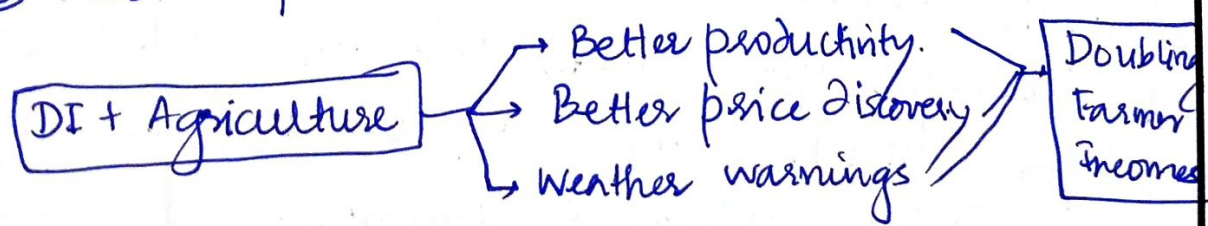 DI + Agriculture
Better productivity.
Better price discovery
Weather warnings
Doubling
Farmer
Incomes